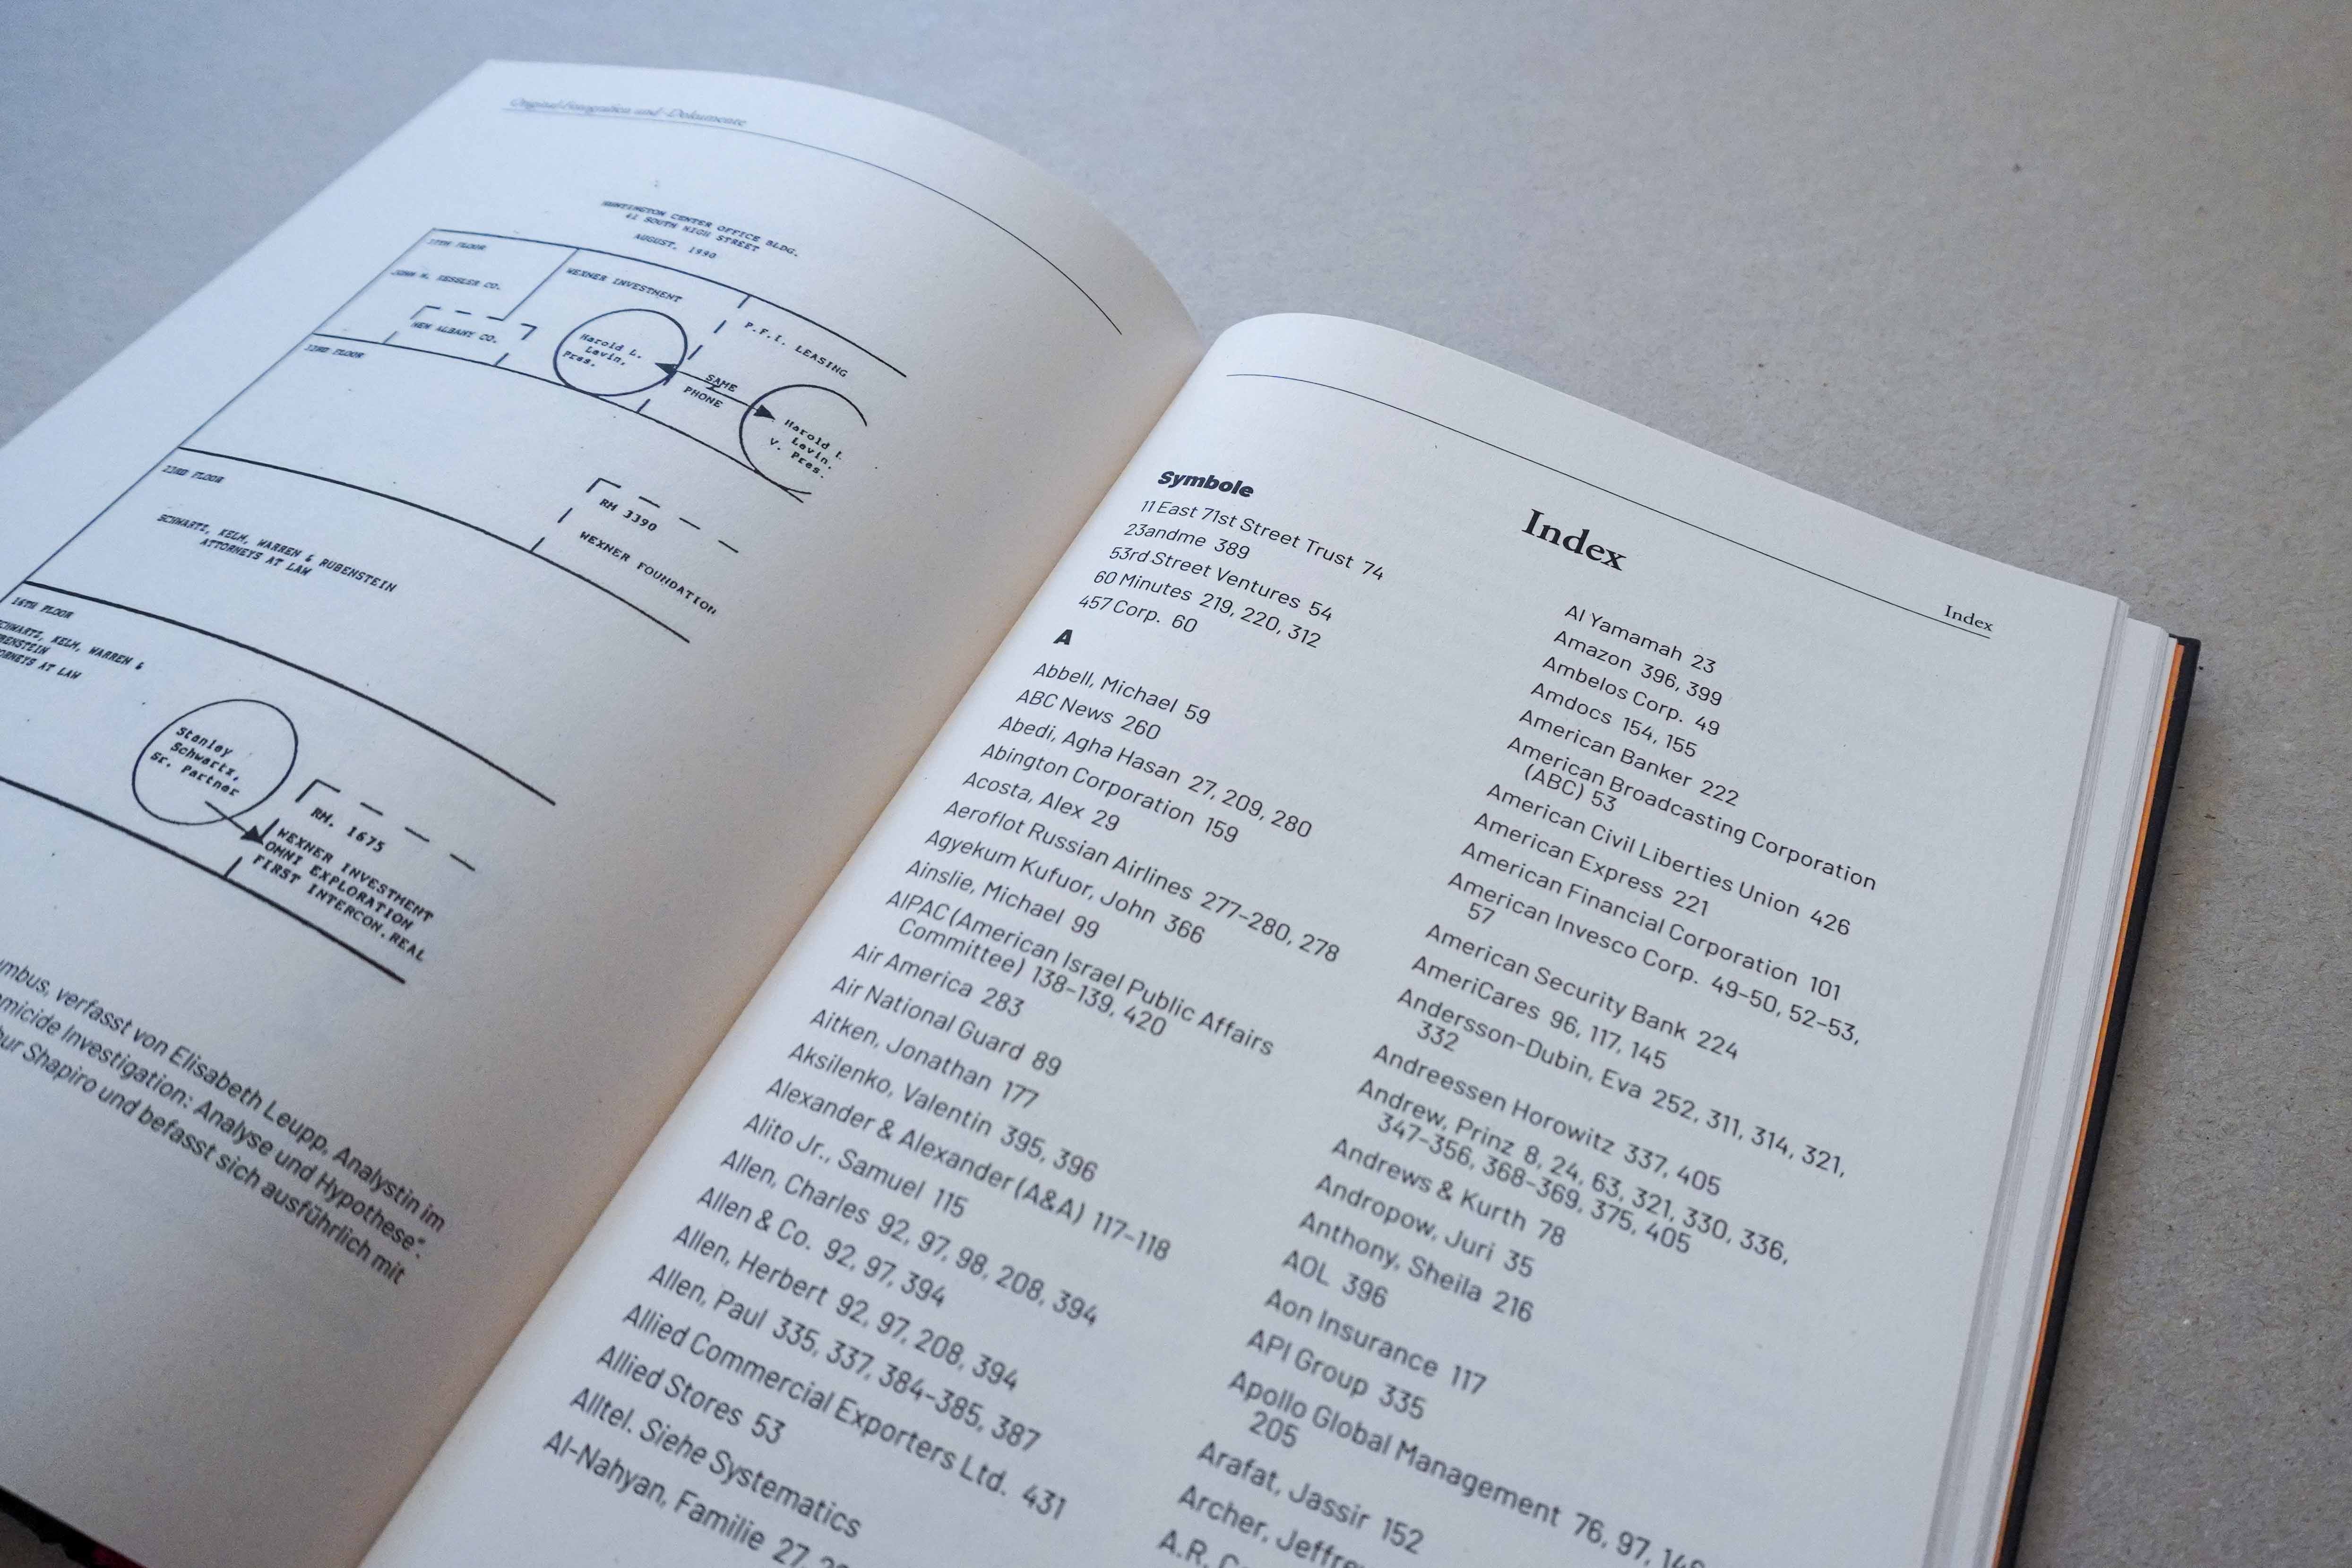 Original-Fotografien und -Dokumente
HUNTINGTON CENTER OFFICE BLDG.
41 SOUTH HIGH STREET
AUGUST, 1990
37TH FLOOR
JOHN W. KESSLER CO.
NEW ALBANY CO.
WEXNER INVESTMENT
Harold L.
Levin,
Pres.
P.F.I. LEASING
SAME
PHONE
Harold L.
Levin,
V. Pres.
33RD FLOOR
RM 3390
WEXNER FOUNDATION
23RD FLOOR
SCHWARTZ, KELM, WARREN & RUBENSTEIN
ATTORNEYS AT LAW
16TH FLOOR
SCHWARTZ, KELM, WARREN &
RUBENSTEIN
ATTORNEYS AT LAW
Stanley
Schwartz,
Sr. Partner
RM. 1675
WEXNER INVESTMENT
OMNI EXPLORATION
FIRST INTERCON. REAL
verfasst von Elisabeth Leupp, Analystin im
Investigation: Analyse und Hypothese“.
Shapiro und befasst sich ausführlich mit
Index
Index
Symbole
11 East 71st Street Trust 74
23andme 389
53rd Street Ventures 54
60 Minutes 219, 220, 312
457 Corp. 60
A
Abbell, Michael 59
ABC News 260
Abedi, Agha Hasan 27, 209, 280
Abington Corporation 159
Acosta, Alex 29
Aeroflot Russian Airlines 277–280, 278
Agyekum Kufuor, John 366
Ainslie, Michael 99
AIPAC (American Israel Public Affairs
Committee) 138–139, 420
Air America 283
Air National Guard 89
Aitken, Jonathan 177
Aksilenko, Valentin 395, 396
Alexander & Alexander (A&A) 117–118
Alito Jr., Samuel 115
Allen, Charles 92, 97, 98, 208, 394
Allen & Co. 92, 97, 394
Allen, Herbert 92, 97, 208, 394
Allen, Paul 335, 337, 384–385, 387
Allied Commercial Exporters Ltd. 431
Allied Stores 53
Alltel. Siehe Systematics
Al-Nahyan, Familie 27,
Al Yamamah 23
Amazon 396, 399
Ambelos Corp. 49
Amdocs 154, 155
American Banker 222
American Broadcasting Corporation
(ABC) 53
American Civil Liberties Union 426
American Express 221
American Financial Corporation 101
American Invesco Corp. 49–50, 52–53,
57
American Security Bank 224
AmeriCares 96, 117, 145
Andersson-Dubin, Eva 252, 311, 314, 321,
332
Andreessen Horowitz 337, 405
Andrew, Prinz 8, 24, 63, 321, 330, 336,
347–356, 368–369, 375, 405
Andrews & Kurth 78
Andropow, Juri 35
Anthony, Sheila 216
AOL 396
Aon Insurance 117
API Group 335
Apollo Global Management 76, 97,
205
Arafat, Jassir 152
Archer,
A.R.